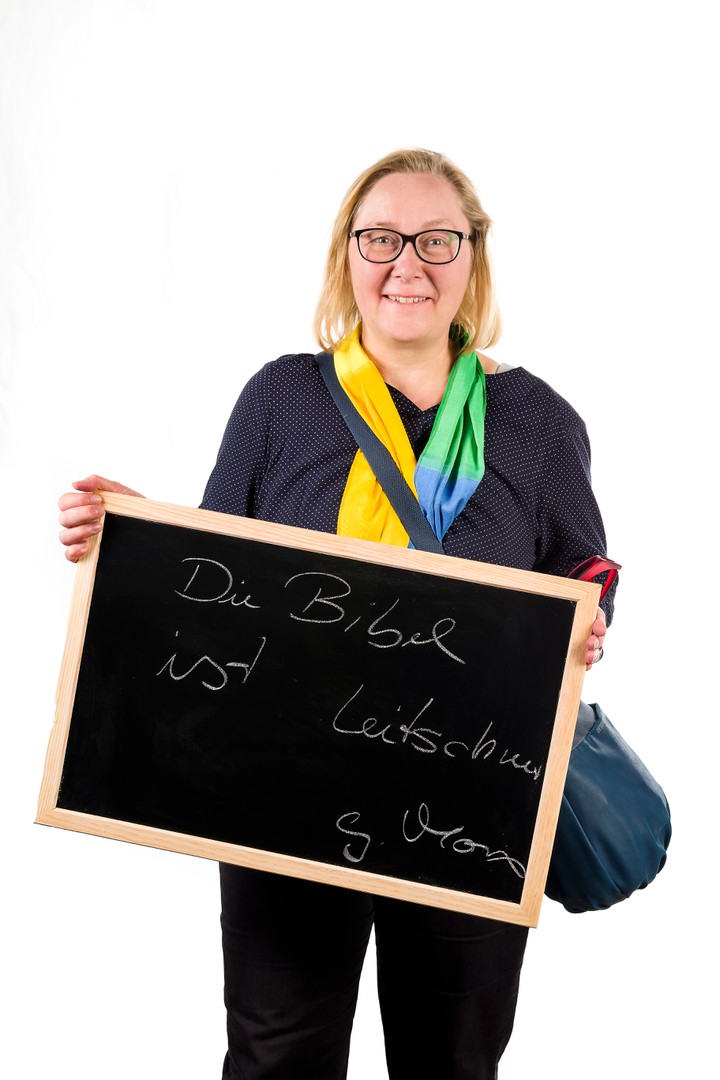 Die Bibel
ist
Leitschnur
G.